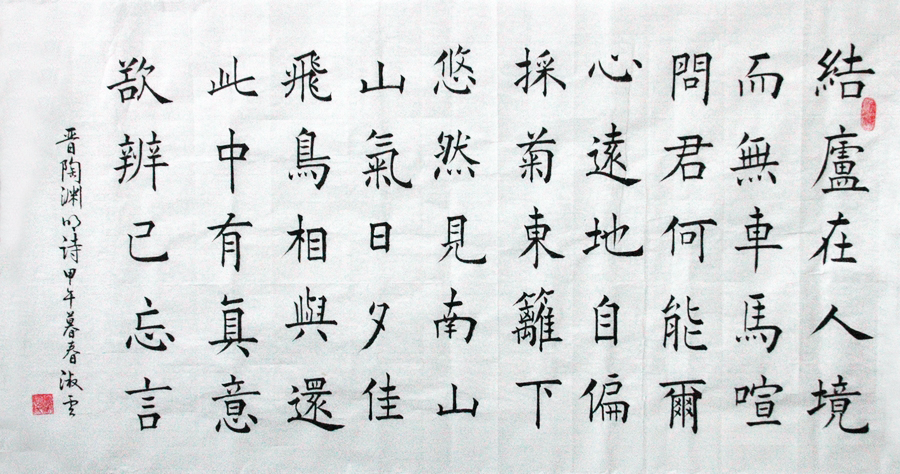 結廬在人境
而無車馬喧
問君何能爾
心遠地自偏
採菊東籬下
悠然見南山
山氣日夕佳
飛鳥相與還
此中有真意
欲辨已忘言
晉陶渊明詩甲午暮春淑雲